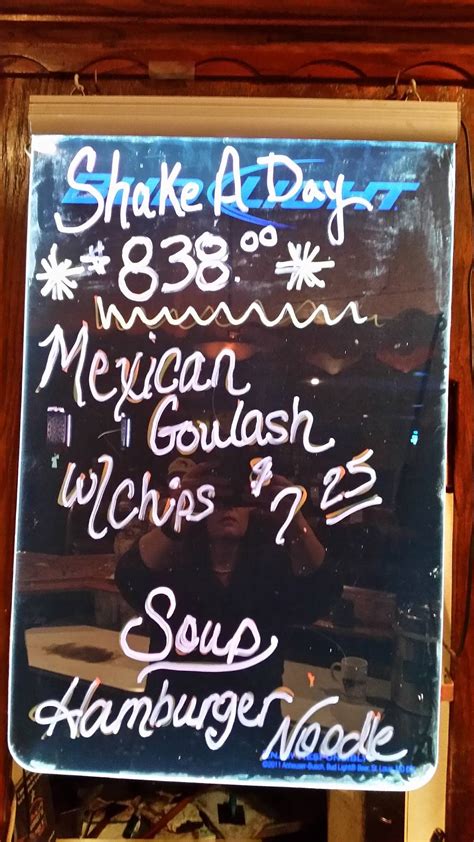 Shake A Day
BUD LIGHT
* $838.00 *
Mexican
Goulash
w/chips $7.25
Soup
Hamburger Noodle
ENJOY RESPONSIBLY
©2011 Anheuser-Busch, Bud Light® Beer, St. Louis, MO